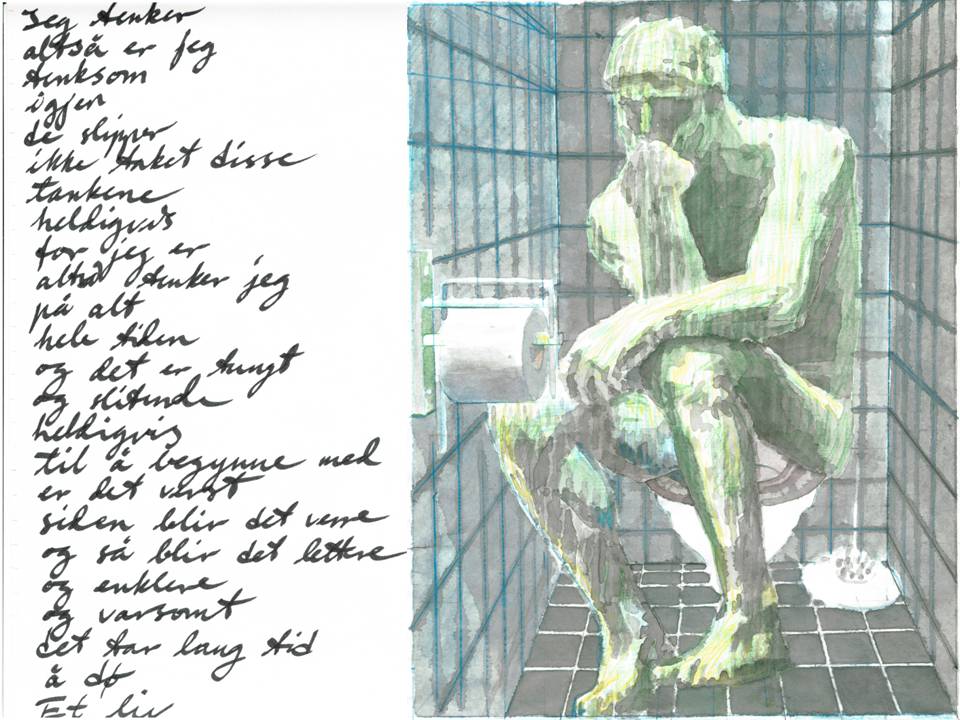 Jeg tenker
altså er jeg
tenksom
igjen
de slipper
ikke taket disse
tankene
heldigvis
for jeg er
altså tenker jeg
på alt
hele tiden
og det er tungt
og slitende
heldigvis
til å begynne med
er det verst
siden blir det verre
og så blir det lettere
og enklere
og varsomt
det tar lang tid
å dø
Et liv